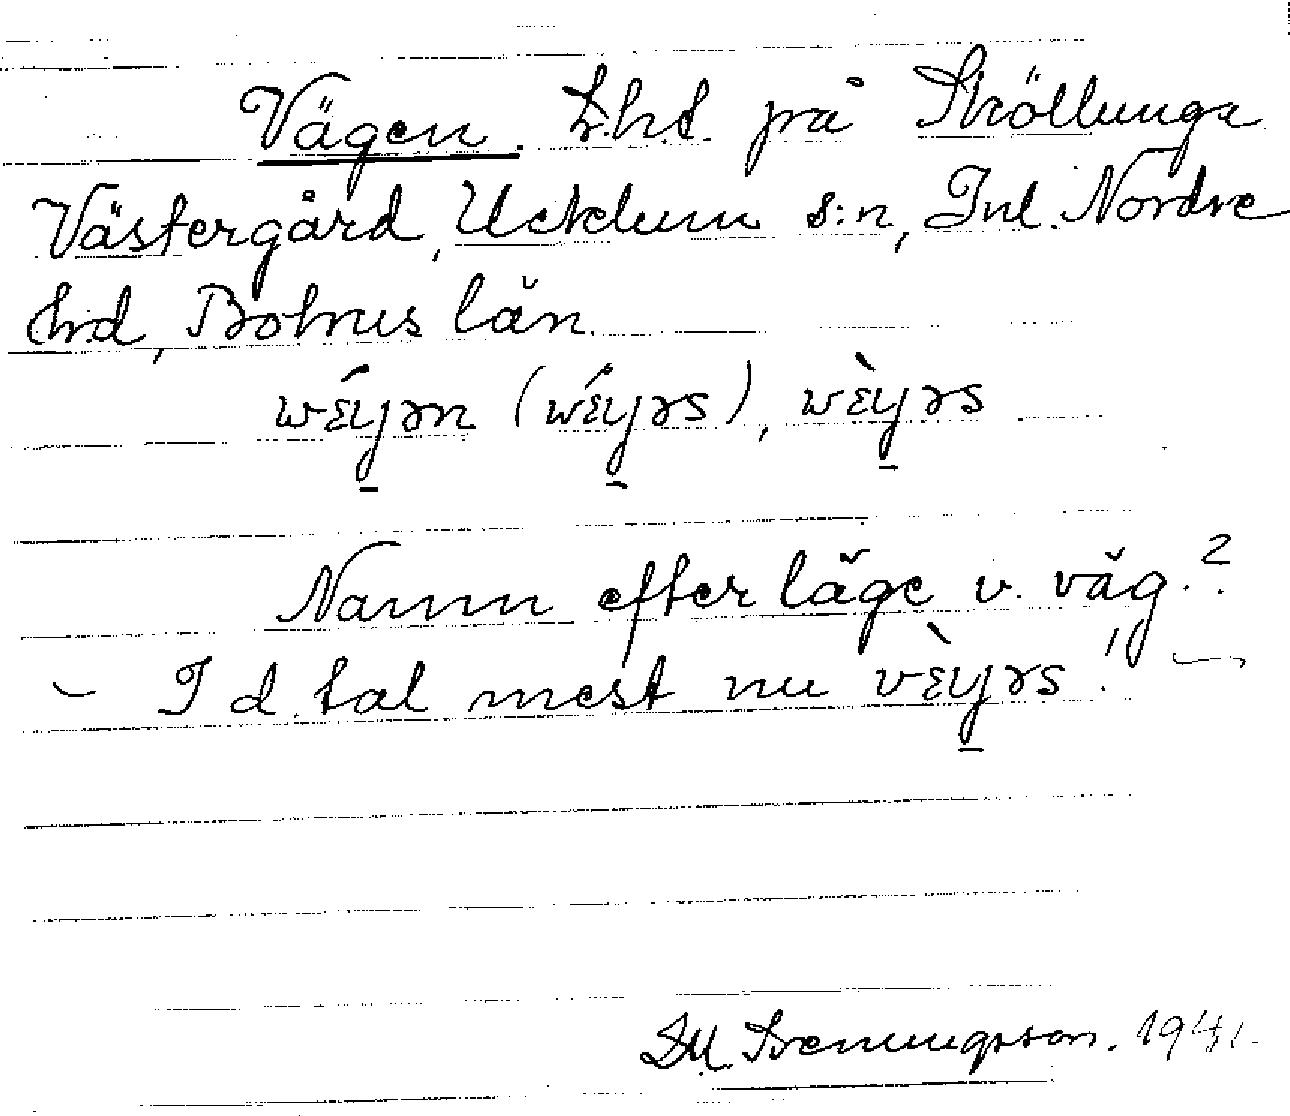 Vägen. L.ht. på Ströllunga
Västergård, Ucklum s:n, Inl. Nordre
hd, Bohus län.
wéyən (wéyəs), wèyəs
Namn efter läge v. väg.?
– I d. tal mest nu vèyəs! –
1941.